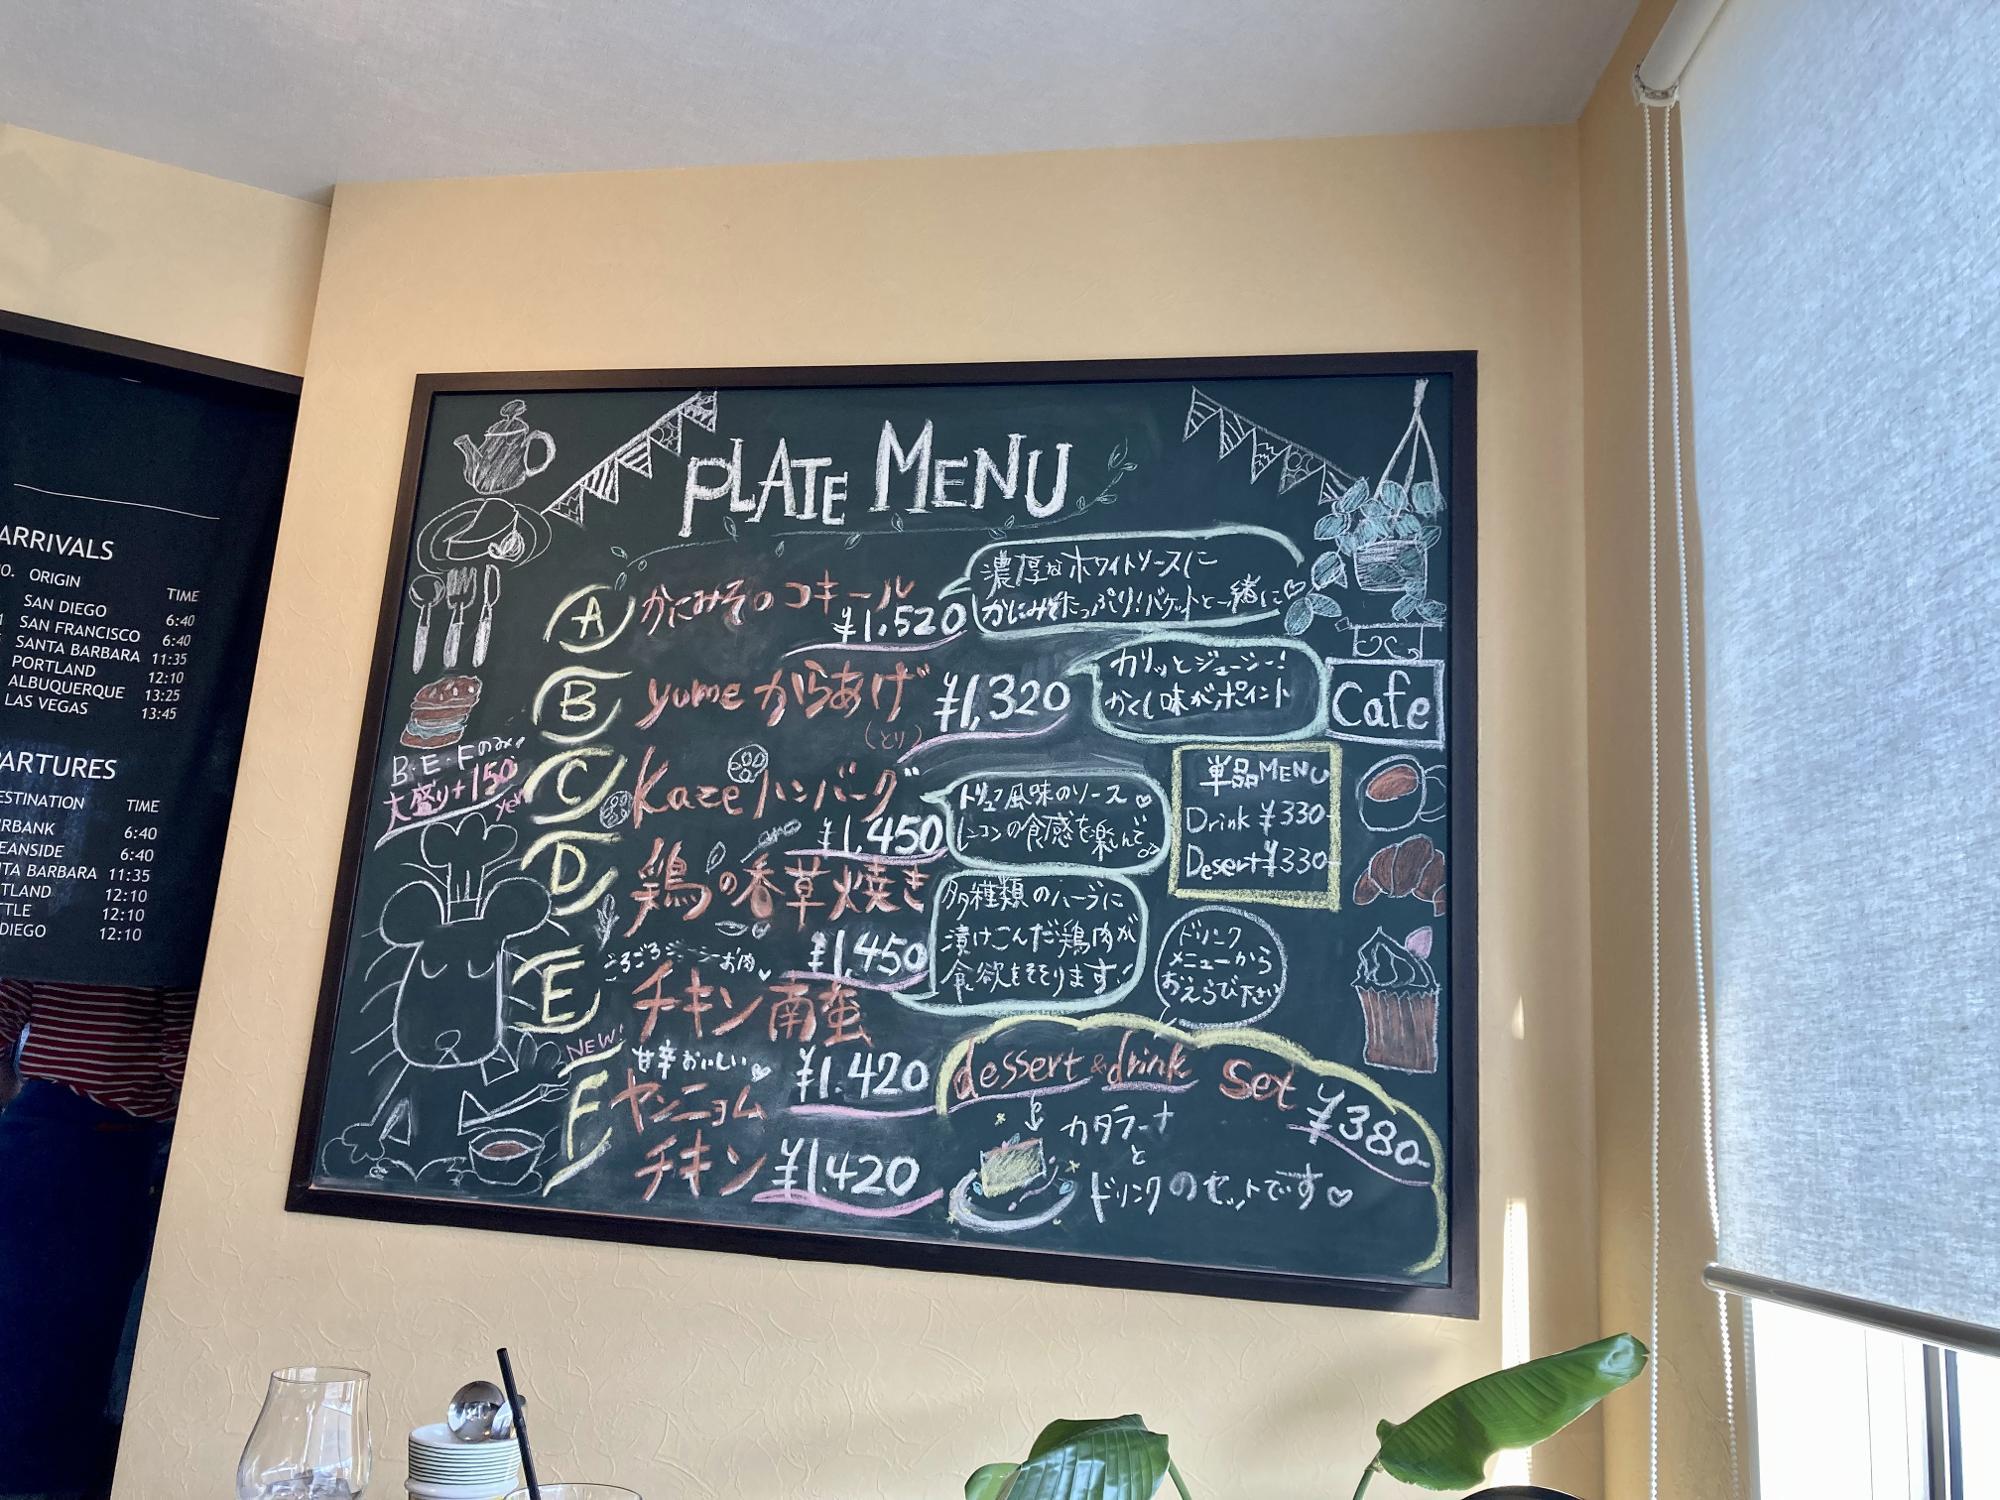 ARRIVALS
NO. ORIGIN TIME
SAN DIEGO 6:40
SAN FRANCISCO 6:40
SANTA BARBARA 11:35
PORTLAND 12:10
ALBUQUERQUE 13:25
LAS VEGAS 13:45
PARTURES
ESTINATION TIME
RBANK 6:40
EANSIDE 6:40
TA BARBARA 11:35
TLAND 12:10
TTLE 12:10
DIEGO 12:10
PLATE MENU
A かにみそのコキール
¥1.520
濃厚なホワイトソースに
かにみそたっぷり!バケットと一緒に♡
B yumeからあげ ¥1,320
(とり)
カリッとジューシー!
かくし味がポイント
B・E・Fのみ!
大盛り+150
yen
C Kazeハンバーグ
¥1.450
トリュフ風味のソース♡
レンコンの食感を楽しんで♪
D 鶏の香草焼き
¥1.450
多種類のハーブに
漬けこんだ鶏肉が
食欲をそそります!
E ごろごろジューシーお肉♡
チキン南蛮
¥1.420
NEW!
F 甘辛おいしい♡
ヤンニョム
チキン ¥1.420
Cafe
単品MENU
Drink ¥330-
Desert ¥330-
ドリンク
メニューから
おえらび下さい
dessert & drink set ¥380-
カタラーナ
と
ドリンクのセットです♡